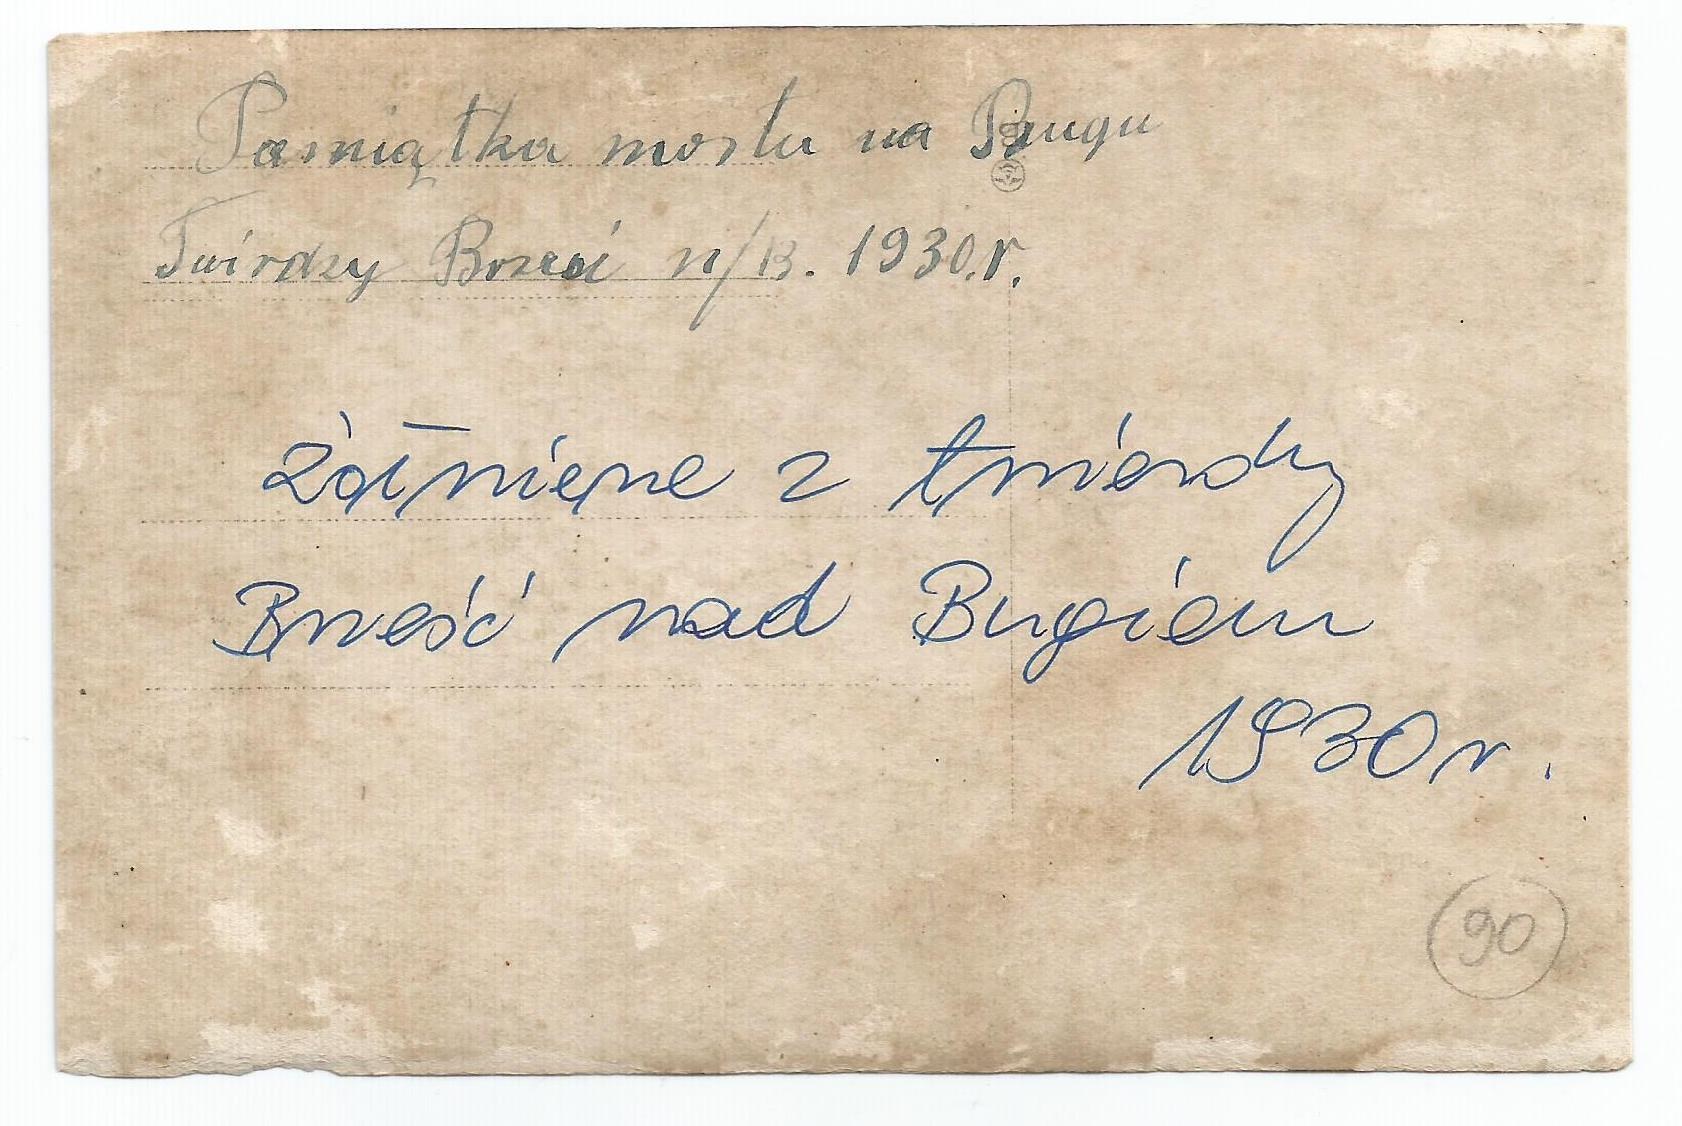 Pamiątka mostu na Bugu
Twirdzy Brześci n/B. 1930.r.
żołnierze z twierdzy
Brześć nad Bugiem
1930 r.
90